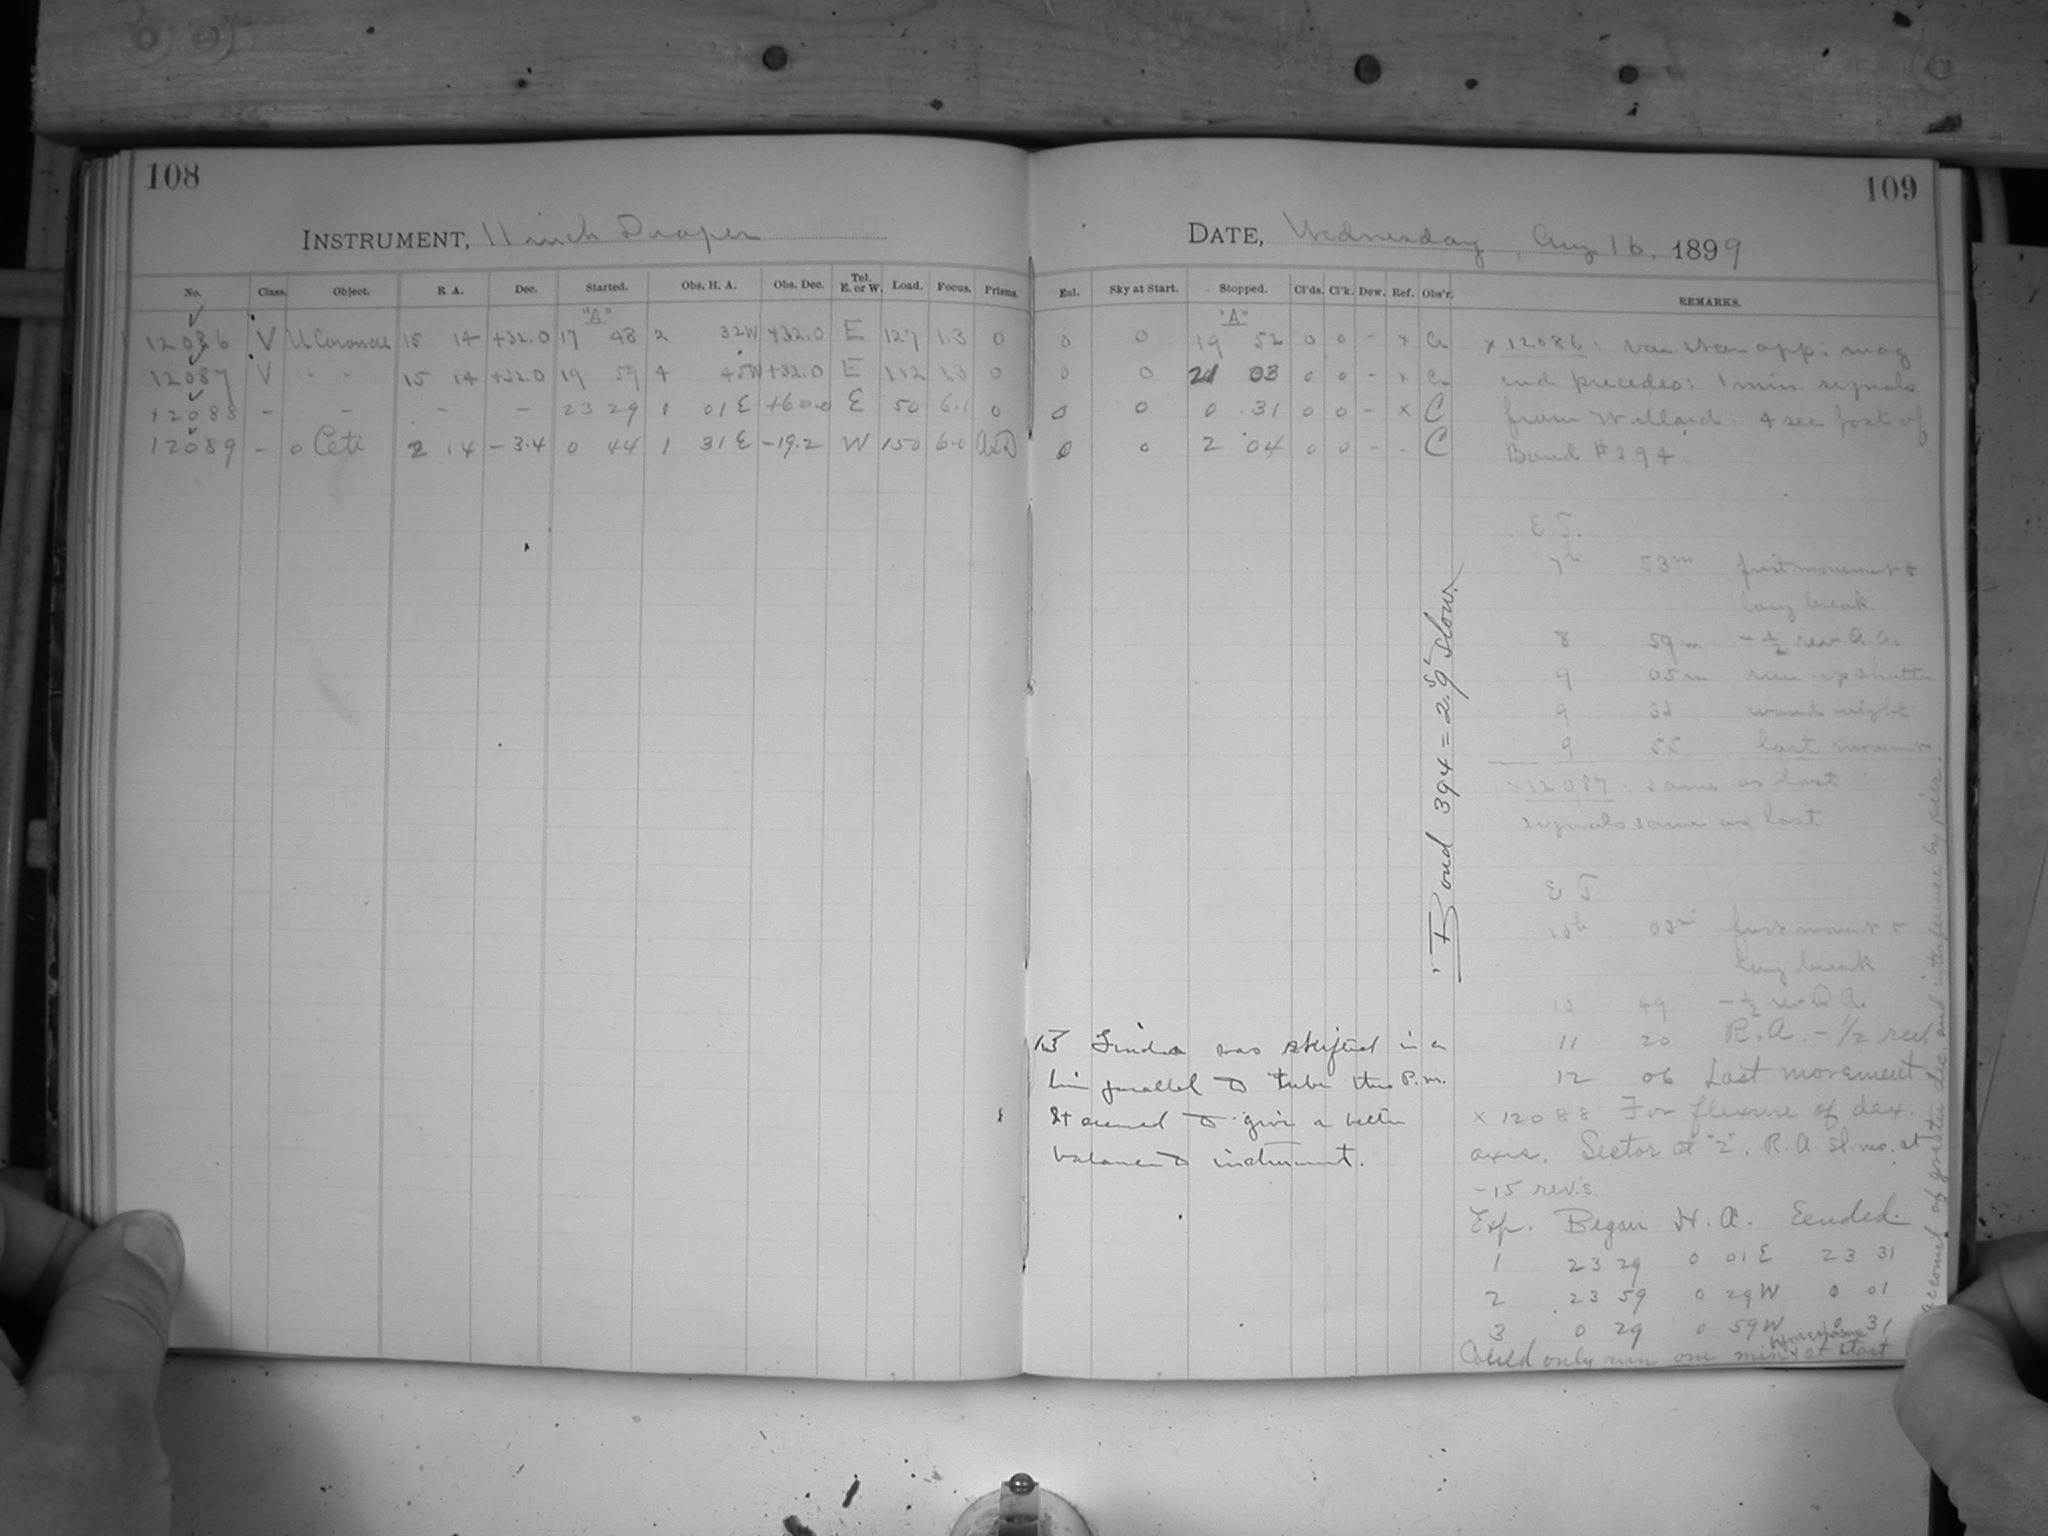 108
INSTRUMENT, 11 inch Draper
No. Class. Object. R. A. Dec. Started. Obs. H. A. Obs. Dec. Tel. E. or W. Load. Focus. Prisms.
"A"
12086 V U Coronae 15 14 +32.0 17 48 2 32W +32.0 E 127 1.3 0
12087 V " " 15 14 +32.0 19 59 4 45W +32.0 E 112 1.3 0
12088 - - - - 23 29 0 01E +60.0 E 50 6.1 0
12089 - o Ceti 2 14 -3.4 0 44 1 31E -19.2 W 150 6.0
109
DATE, Wednesday, Aug 16, 1899
Enl. Sky at Start. Stopped. Cl'ds. Cl'k. Dew. Ref. Obs'r. REMARKS.
"A"
0 0 19 52 0 0 - x
0 0 21 03 0 0 - x
0 0 0 31 0 0 - x C
0 0 2 04 0 0 - - C
x 12086: var star app. mag
and precedes: 1 min signals
from Willard. 4 sec fast of
Bond #394
E. T.
7h 53m first movement &
long break
8 59m -½ rev R.A.
9 05m ran up shutter
9 32 wound weight
9 55 last movement
x 12087: same as last
signals same as last
E T
10h 03m first movement &
long break
10 49 -½ rev R.A.
11 20 R.A. -1/2 rev.
12 06 Last movement
x 12088 For flexure of dec.
axis. Sector at "2". R.A sl. mo. at
-15 rev.'s
Exp. Began H. A. Eended.
1 23 29 0 01 E 23 31
2 23 59 0 29 W 0 01
3 0 29 0 59 W 0 31
Could only run one min at start
account of greater dec. and interference by pier.
Bond 394 = 2.9s slow.
Finder was shifted in a
line parallel to tube this P.M.
It seemed to give a better
balance to instrument.